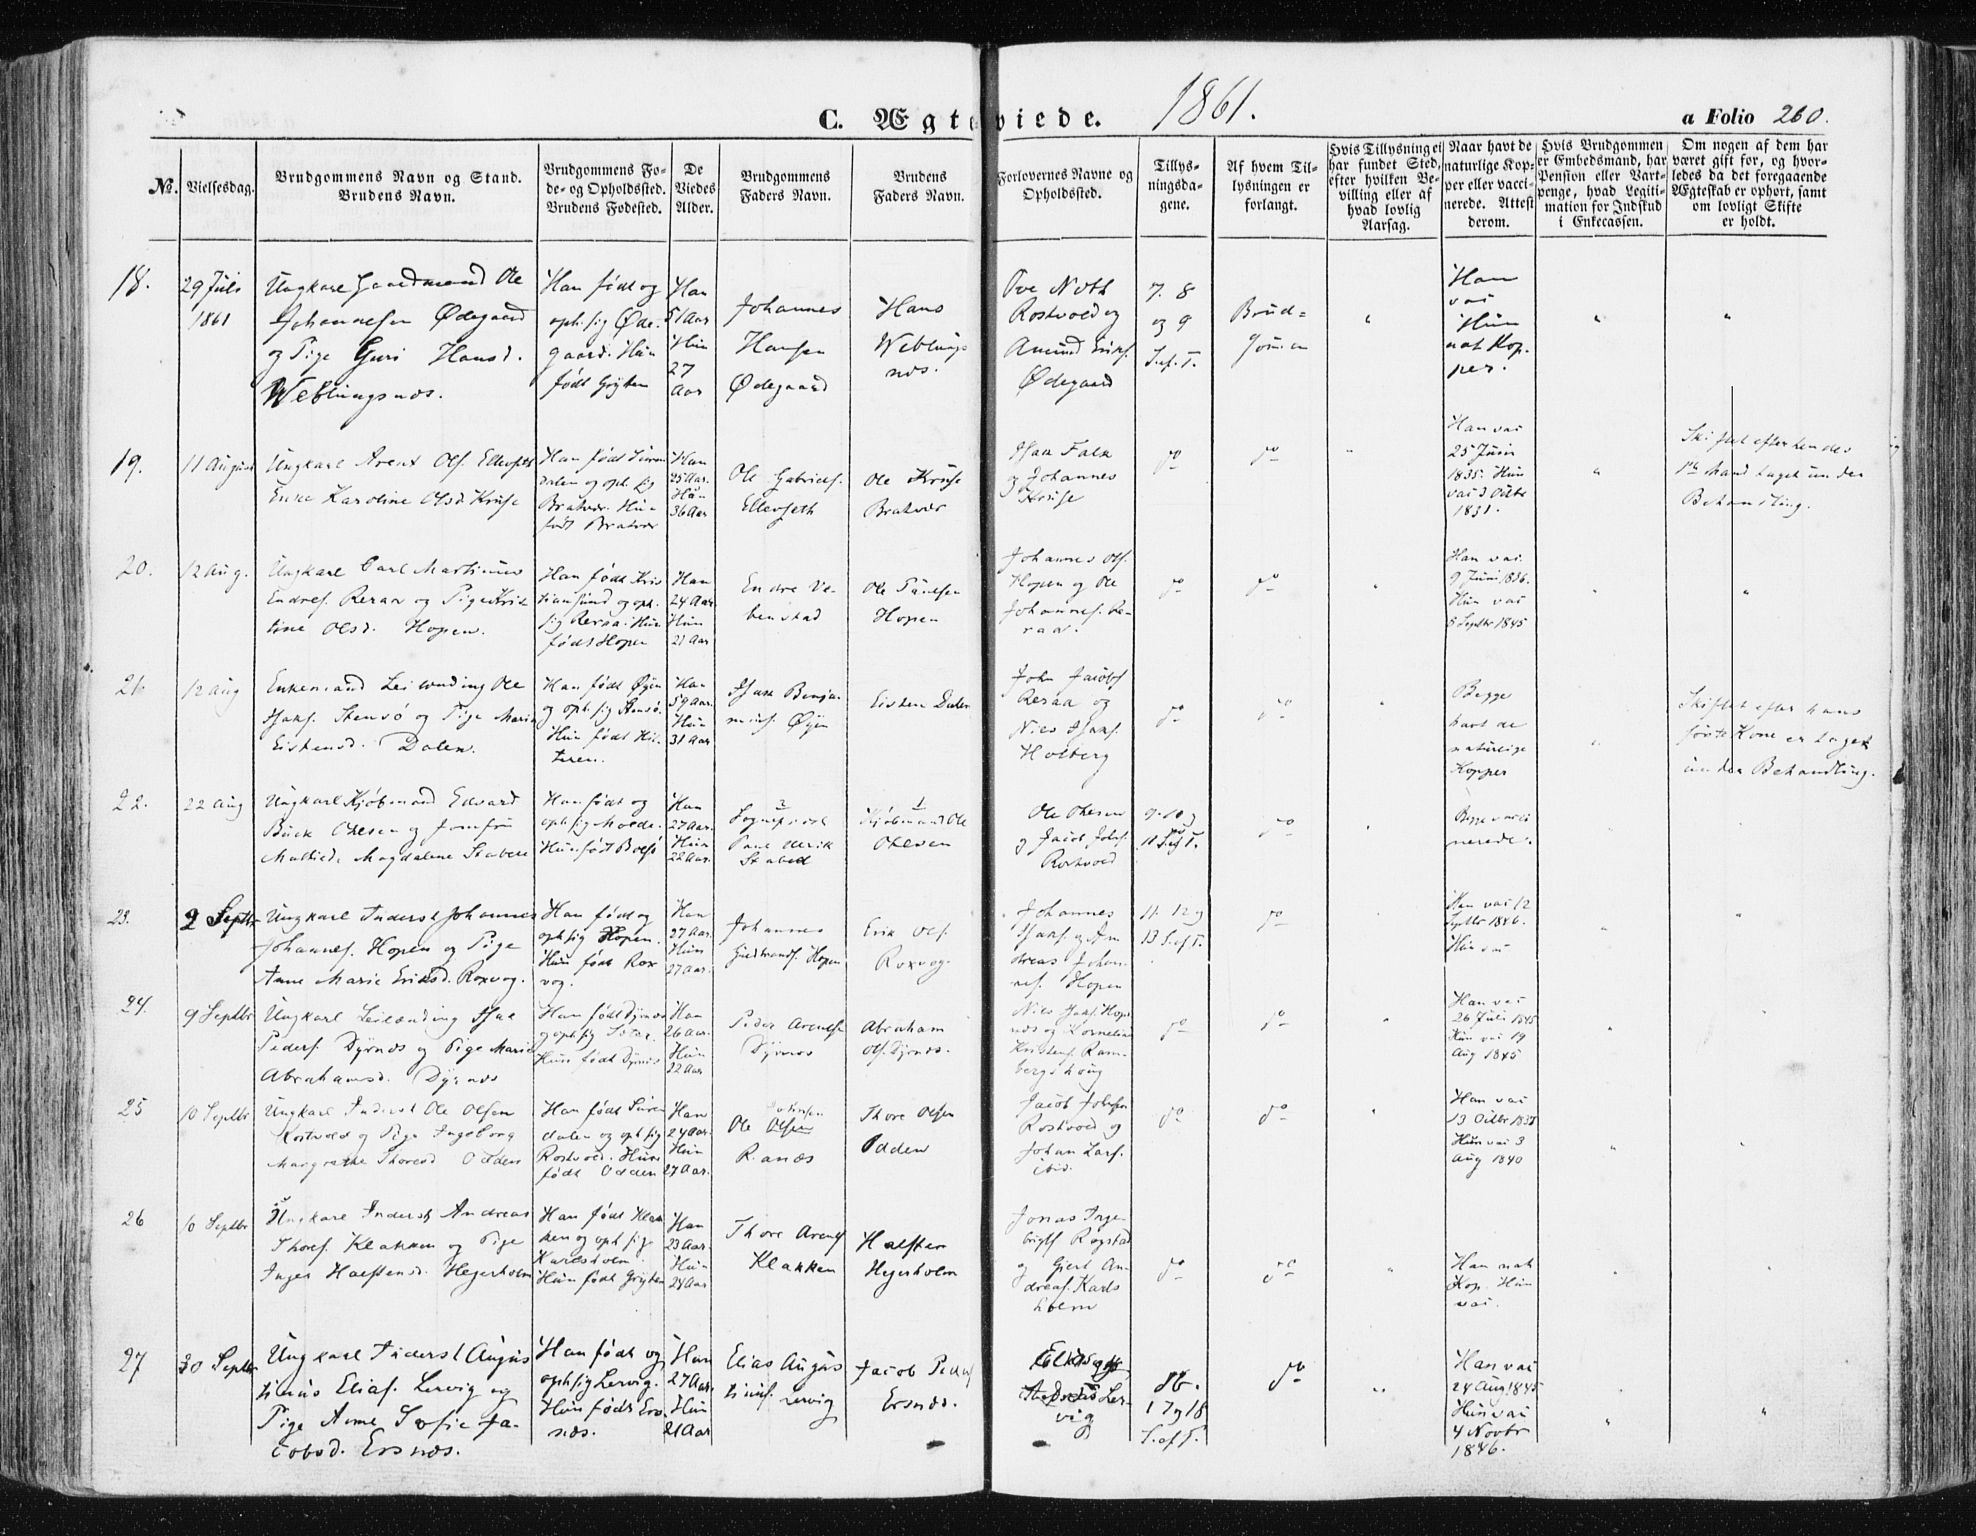 C. Ægteviede. 1861. a Folio 260.
No.
Vielsesdag.
Brudgommens Navn og Stand.
Brudens Navn.
Brudgommens Fo-
de- og Opholdssted.
Brudens Fødested.
De
Viedes
Alder.
Brudgommens
Faders Navn.
Brudens
Faders Navn.
Forlovernes Navne og
Opholdssted.
Tillys-
ningsda-
gene.
Af hvem Til-
lysningen er
forlangt.
Hvis Tillysning ei
har fundet Sted,
efter hvilken Be-
villing eller af
hvad lovlig
Aarsag.
Naar havt de
naturlige Kop-
per eller vacci-
nerede. Attest
derom.
Hvis Brudgommen
er Embedsmand, har
Pension eller Vart-
penge, hvad Legiti-
mation for Indskud
i Enkecassen.
Om nogen af dem har
været gift før, og hvor-
ledes da det foregaaende
Ægteskab er ophørt, samt
om lovligt Skifte
er holdt.
18.
29 Juli
1861
Ungkarl Gaardmand Ole
Johannesen Ødegaard
og Pige Guri Hansd.
Weblungsnæs.
Han født og
oph. sig Øde-
gaard. Hun
født Gryten
Han
51 Aar
Hun
27
Aar
Johannes
Hansen
Ødegaard
Hans
Weblungs
næs.
Ove Noth
Rostvold og
Amund Eriks.
Ødegaard
7. 8
og 9
S. ef. T.
Brud-
gommen
"
Han
vac
Hun
nat Kop.
per.
"
"
19.
11 August
Ungkarl Arent Ols. Ellevseth
Enke Karoline Olsd. Kruse
Han født Suren
dalen og oph. sig
Bratvær. Hun
født Bratvær
Han
25 Aar.
Hun
36 Aar
Ole Gabriels.
Ellevseth
Ole Kruse
Bratvær
Isaa Falk
og Johannes
Kruse
do
do
"
Han vac
25 Juni
1835. Hun
vac 3 Octbr
1831.
"
Skiftet efter hendes
1ste Mand taget under
Behandling.
20.
12 Aug.
Ungkarl Carl Martinus
Endres. Reraa og Pige Kris
tine Olsd. Hopen.
Han født Kris
tiansund og oph.
sig Reraa. Hun
født Hopen
Han
24 Aar
Hun
21 Aar
Endre Ve-
benstad
Ole Paulsen
Hopen
Johannes Ols.
Hopen og Ole
Johannes. Re-
raa.
do
do
"
Han vac.
9 Juni 1836.
Hun vac
5 Septbr 1845
"
"
21
12 Aug
Enkemand Leilending Ole
Isaks. Stensø og Pige Marie
Eistensd. Dalen.
Han født Øyen
og oph. sig Stensø.
Hun født Hit-
teren.
Han
59 Aar.
Hun
31 Aar
Isak Benja-
mins. Øyen
Eisten Dalen
John Jacobs
Reraa og
Nils Isaks.
Holberg
do
do
"
Begge
havt de
naturlige
Kopper
"
Skiftet efter hans
første Kone er taget
under Behandling.
22.
22 Aug
Ungkarl Kjøbmand Edvard
Buck Olesen og Jomfru
Mathilde Magdalene Stabell
Han født og
oph. sig Molde.
Hun født Bolsø
Han
27 Aar.
Hun
22 Aar.
2
Sogneprest
Stabell
1
Kjøbmand Ole
Olesen
Ole Olesen
og Jacob Johs.
Rostvold
9. 10 og
11 S. ef T.
do
"
Begge vacci
nerede.
23.
2 Septbr
Ungkarl Inderst Johannes
Johannes. Hopen og Pige
Anne Marie Eriksd. Roxvog.
Han født og
oph. sig Hopen.
Hun født Rox
vog.
Han
27 Aar.
Hun
27 Aar.
Johannes
Gudbrands. Hopen
Erik Ols.
Roxvog.
Johannes
Isaks. og An
dreas Johan-
nes. Hopen
11. 12 og
13 S. ef T.
do
"
Han vac 12
Septbr 1846.
Hun vac
"
"
24.
9 Septbr
Ungkarl Leilending Isak
Peders. Dyrnæs og Pige Marie
Abrahamsd. Dyrnæs
Han født Dyrnæs
og oph. sig
Hun født Dyrnæs
Han
26 Aar.
Hun
22 Aar
Peder Arents
Dyrnæs
Abraham
Ols. Dyrnæs.
Nils Isaks. Hops
næs og Kornelius
Kristens. Ram-
bergshoug
do
do
"
Han vac
26 Juli 1845
Hun vac 19
Aug 1845
"
"
25
10 Septbr
Ungkarl Inderst Ole Olsen
Rostvold og Pige Ingeborg
Margrethe Thoresd Odden
Han født Suren
dalen og oph sig
Rostvold. Hun
født Odden
Han
24 Aar.
Hun
27 Aar.
Ole Olsen
Ranæs
Thore Olsen
Odden
Jacob Johnsen
Rostvold og
Johan Lars.
ibid.
do
do
"
Han vac
13 Octbr 1838
Hun vac 3
Aug 1840
"
"
26
10 Septbr
Ungkarl Inderst Andreas
Thores. Klakken og Pige
Inger Halstensd. Hegerholm
Han født Klak
ken og oph sig
Karlsholm
Hun født Gryten
Han
23 Aar.
Hun
24 Aar
Thore Arents
Klakken
Halsten
Hegerholm
Jonas Inge-
brigts Rogstad
og Giert An-
dreas. Karls
holm
do
do
"
Han nat
Kop. Hun
vac.
"
"
27
30 Septbr
Ungkarl Inderst Augus
tinus Elias. Lervig og
Pige Anne Sofie Ja-
cobsd. Ersnæs.
Han født og
oph sig Lervig.
Hun født Ers
næs.
Han
27 Aar.
Hun
21 Aar
Elias Augus
tinus. Lervig
Jacob Peders
Ersnæs.
Elias og
Andreas Ler-
vig
16.
17 og 18
S. ef T.
do
"
Han vac
24 Aug 1845
Hun vac
4 Novbr
1846.
"
"